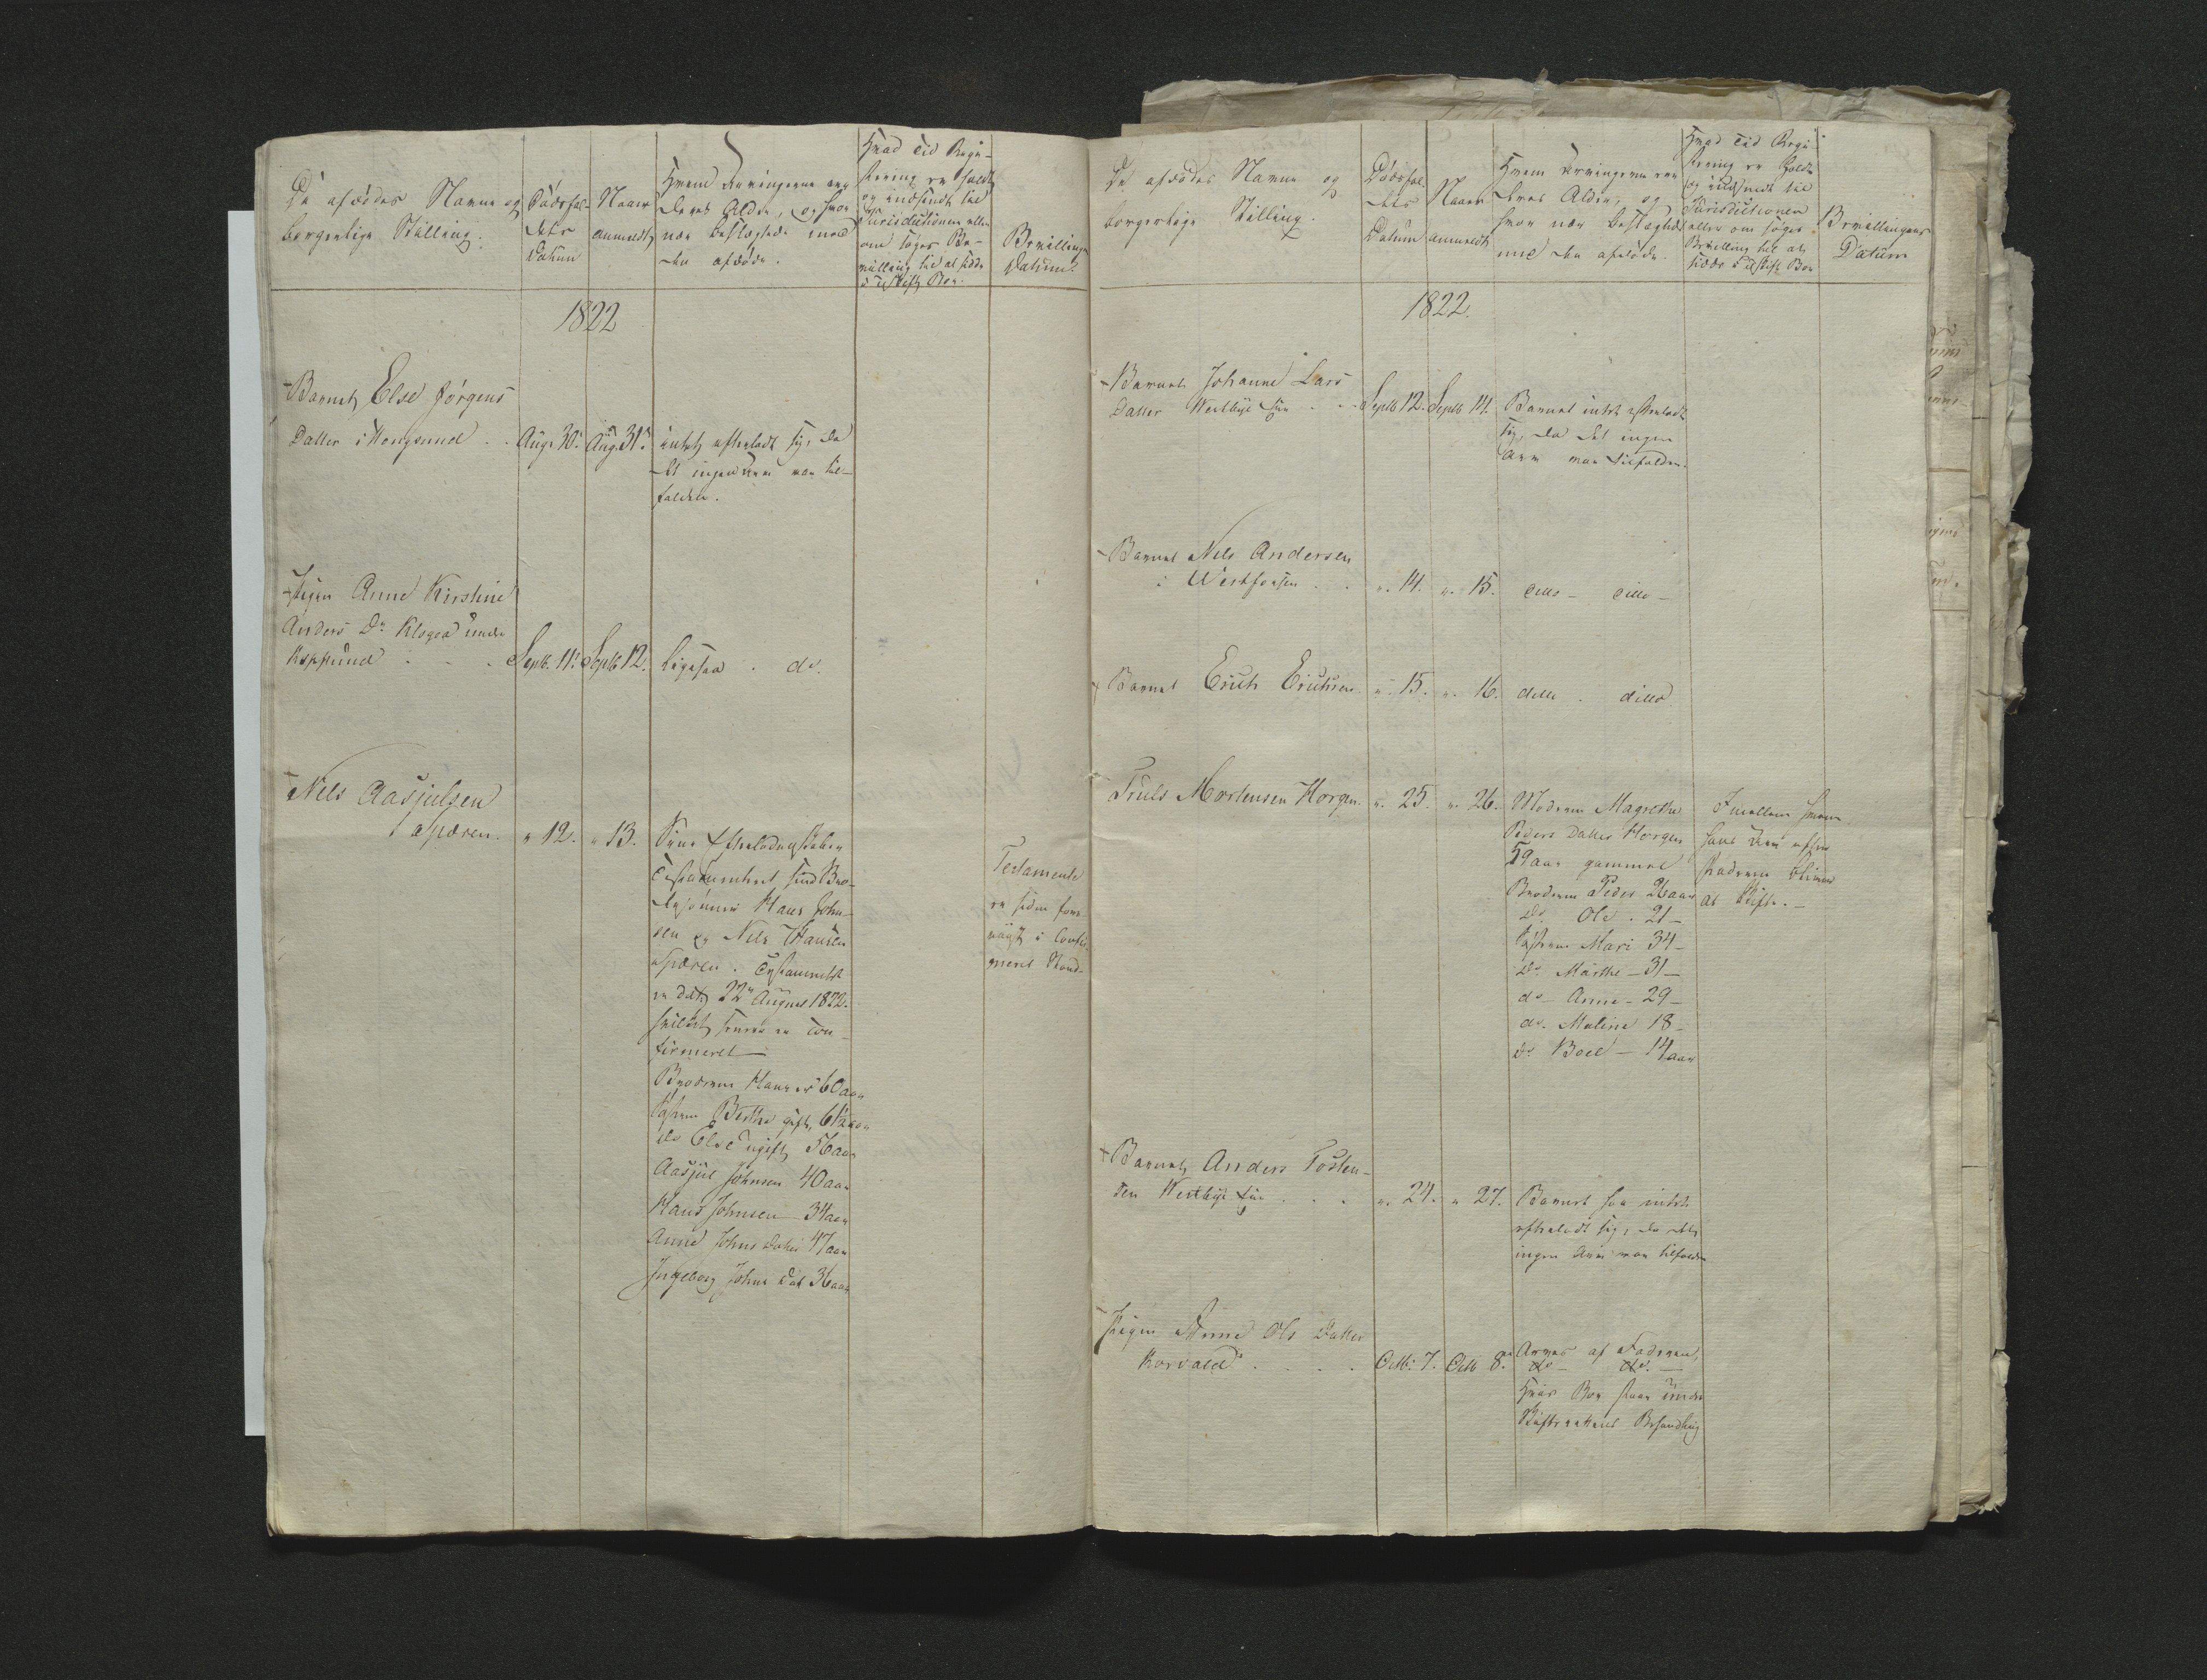 De afdødes Navne og
borgerlige Stilling.
Dødsfal-
dets
Datum
Naar
anmeldt
Hvem Arvingerne ere
deres Alder, og hvor
nær beslægtede med
den afdøde.
Hvad Tid Regi-
strering er holdt
og indsendt til
Jurisdictionen eller
om søges Be-
villing til at sidde
i uskift Boe.
Bevillingens
Datum.
1822
Barnet Else Jørgens
Datter i Kongsund . .
Aug. 30.
Aug. 31.
intet efterladt sig, da
det ingen Arv var til-
falden.
Pigen Anne Kirstine
Anders Dr. Klopra under
Septb. 11.
Septb. 12.
ligesaa . do.
Nels Aasjulsen
Aspæren.
" 12.
" 13.
Sine Efterladenskaber
Testamenteret sine Bro-
dersønner Hans John-
sen og Nels Hansen
Aspæren. Testamentet
er dat. 22de August 1822.
hvilket senere er con-
firmeret —
Broderen Hans er 60 aar
Søstern Berthe gift, 61½ aar
do Else ugift 56 aar
Aasjul Johnsen 40 aar
Hans Johnsen 34 aar
Anne Johns Datter 47 aar
Ingeborg Johns Dat 36 aar
Testamente
er siden fore-
viist i Confir-
meret Stand.
De afdødes Navne og
borgerlige Stilling.
Dødsfal-
dets
Datum
Naar
anmeldt
Hvem Arvingerne ere
deres Alder, og
hvor nær beslægtede
med den afdøde.
Hvad Tid Regi-
strering er holdt
og indsendt til
Jurisdictionen
eller om søges
Bevilling til at
sidde i uskift Boe
Bevillingens
Datum
1822.
Barnet Johanne Lars
Datter Westbye Eje . . .
Septb 12.
Septb 14.
Barnet intet efterladt
sig, da det ingen
Arv var tilfalden.
Barnet Nels Andersen
i Westfossen . .
". 14.
". 15.
ditto — ditto —
Barnet Erich Erichsen.
". 15.
". 16.
ditto . ditto
Truls Mortensen Horgen.
". 25.
". 26.
Moderen Magrethe
Peders Datter Horgen
59 aar gammel
Broderen Peder 26 aar
Do Ole . 21 —
Søstern Mari 34 —
Do Marthe — 31 —
do — Anne — 29 —
do. Maline 18 —
do Boel — 14 aar
Imellem hvem
hans Arv efter
Faderen bliver
at skifte. —
Barnet Anders Tosten-
sen Westbye Eje . . .
". 24.
" 27.
Barnet har intet
efterladt sig, da det
ingen Arv var tilfalden
Pigen Anne Ols Datter
Korvald . . . .
Octb: 7.
Octb 8.
Arves af Faderen,
do — do. —
Hvis Boe staar under
Skifterettens Behandling